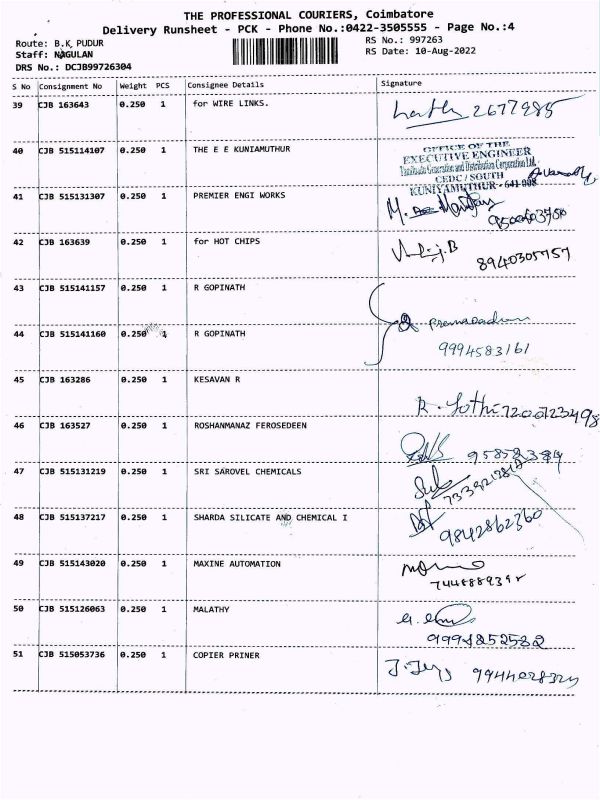 THE PROFESSIONAL COURIERS, Coimbatore
Delivery Runsheet - PCK - Phone No.:0422-3505555 - Page No.:4
Route: B.K.PUDUR RS No.: 997263
Staff: NAGULAN RS Date: 10-Aug-2022
DRS No.: DCJB99726304
S No Consignment No Weight PCS Consignee Details Signature
39 CJB 163643 0.250 1 for WIRE LINKS. 2677985
40 CJB 515114107 0.250 1 THE E E KUNIAMUTHUR
OFFICE OF THE
EXECUTIVE ENGINEER
Tamilnadu Generation and Distribution Corporation Ltd.
CEDC / SOUTH
KUNIYAMUTHUR - 641 008
41 CJB 515131307 0.250 1 PREMIER ENGI WORKS
42 CJB 163639 0.250 1 for HOT CHIPS 8940305757
43 CJB 515141157 0.250 1 R GOPINATH
44 CJB 515141160 0.250 1 R GOPINATH 9994583161
45 CJB 163286 0.250 1 KESAVAN R
46 CJB 163527 0.250 1 ROSHANMANAZ FEROSEDEEN
47 CJB 515131219 0.250 1 SRI SAROVEL CHEMICALS
48 CJB 515137217 0.250 1 SHARDA SILICATE AND CHEMICAL I 9842862360
49 CJB 515143020 0.250 1 MAXINE AUTOMATION
50 CJB 515126063 0.250 1 MALATHY 9994852582
51 CJB 515053736 0.250 1 COPIER PRINER